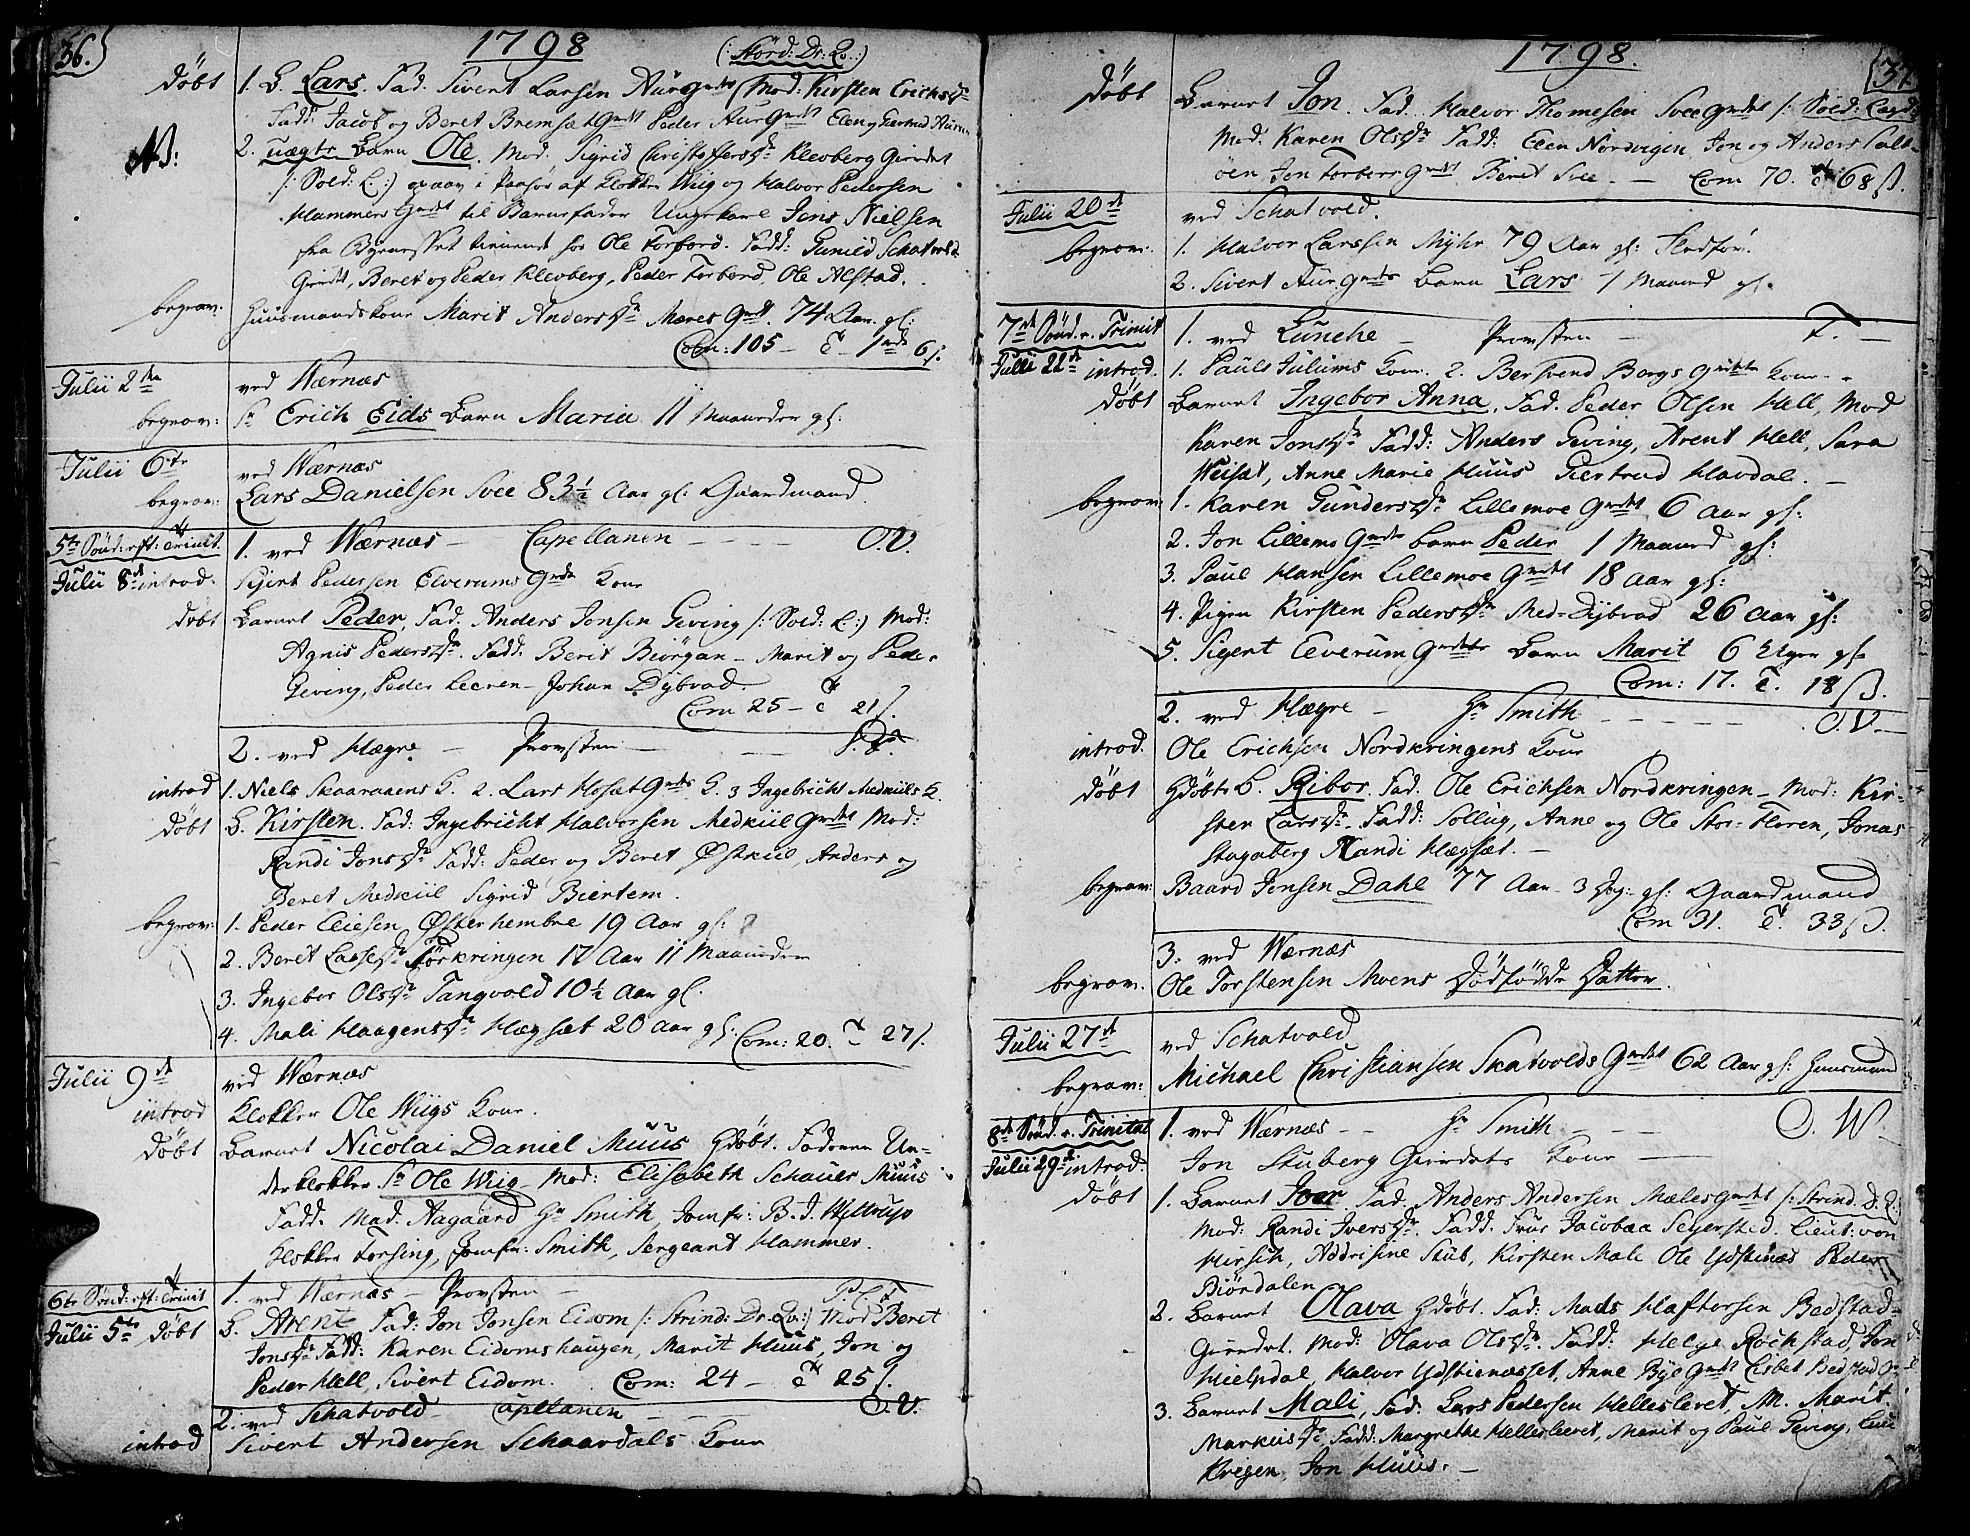 36.
1798
(: Störd: Dr: Qv.:)
döbt 1. B. Lars. Fad. Sivert Larsen Aurgrdt (Mod: Kirsten Erichsdr
Fadd: Jacob og Beret Bremsætgrdt Peder Aurgrdt Elen og Giertrud Aurv
NB: 2. uægte Barn Ole. Mod. Sigrid Christophersdr Klevberg Giærdet
/: Sold: L:) opgav i Paahør af Klokker Wiig og Halvor Pedersen
Hammersgrdt til Barnefader Ungekarl Jens Nielsen
fra Bynæsset tienende hos Ole Forbord. Fadd: Gunild Schatvold
Giærdt, Beret og Peder Klevberg, Peder Forbord, Ole Alstad.
begrav: Huusmandskone Marit Andersdr Mæresgrdt. 74 Aar gl:
Com: 105 - T - 1 6/.
Julii 2den ved Wærnæs
begrav: Sr Erich Eids Barn Maria 11 Maaneder gl:
Julii 6te ved Wærnæs
begrav: Lars Danielsen Svee 83½ Aar gl: Gaardmand.
5te Sönd: eft: Trinit. 1. ved Wærnæs - Capellanen - - - - O.V.
Julii 8de introd. Sigert Pedersen Elverums Grds Kone
döbt Barnet Peder, Fad. Anders Jensen Geving /: Sold: L:) Mod:
Agnis Pedersdr. Fadd: Berit Biörgan - Marit og Peder
Geving, Peder Leeren - Johan Dybvad.
Com 25 - T 21/.
2. ved Hægre - Provsten -
introd 1. Niels Skaaraaens K. 2. Lars Hosæt Grds K. 3 Ingebricht Medkiils K.
döbt B. Kirsten. Fad: Ingebricht Halvorsen Medkiil Grdet Mod:
Randi Jonsdr Fadd: Peder og Beret Østkiil, Anders og
Beret Medkiil Sigrid Biertem.
begrav: 1. Peder Eliesen Østerhembre 19 Aar gl:
2. Beret Larsdr Förkringen 17 Aar 11 Maaneder
3. Ingebor Olsdr Tangvold 10½ Aar gl.
4. Mali Haagensdr Hægsæt 20 aar gl: Com: 20. T 27/.
Julii 9de ved Wærnæs
introd Klokker Ole Wiigs Kone.
döbt Barnet Nicolai Daniel Muus Hdöbt. Faderen Un-
derklokker Sr Ole Wiig - Mod: Elisabeth Schauer Muus
Fadd. Mad. Aagaard Hr Smith, Jomfr: B. J. Wittrup
Klokker Forsing, Jomfr: Smith, Sergeant Hammer.
6te Sönd: eft: Trinit 1. ved Wærnæs - Provsten -
Julii 5te döbt B. Arent Fad: Jon Jonsen Eidom /: Strind: Dr. Qv:/ Mod Beret
Jonsdr Fadd: Karen Eidomshaugen, Marit Huus, Jon og
Peder Hell, Sivert Eidom. Com: 24 - T 25/.
2. ved Schatvold Capellanen - - - O.V.
introd Sivert Andersen Schaardals Kone
1798.
37
döbt Barnet Jon. Fad. Halvor Thomesen Svee Grdet /: Sold:
Mod. Karen Olsdr Fadd: Elen Nordvigen, Jon og Anders Salt-
öen Jon Forbors Grdt Beret Svee. - Com 70. T 68 ß.
Julii 20de ved Schatvold.
begrav: 1. Halvor Larssen Myhr 79 Aar gl:
2. Sivert Aur Grds Barn Lars 1 Maaned gl.
7de Sönd. e. Trinit 1. ved Lånche - Provsten - T. -
Julii 22de introd. 1. Paul Julums Kone. 2. Bersvend Borgs Grds Kone -
döbt Barnet Ingebor Anna. Fad. Peder Olsen Hell, Mod
Karen Jonsdr Fadd: Anders Geving, Arent Hell, Sara
Weisæt, Anne Marie Huus Giertrud Havdal. -
begrav 1. Karen Gundersdr Lillemoe Grdet 6 Aar gl:
2. Jon Lillemo Grds barn Peder 1 Maaned gl:
3. Paul Hansen Lillemoe Grdet 18 Aar gl:
4. Pigen Kirsten Pedersdr Med-Dybvad 26 Aar gl:
5. Sigert Elverum Grdets Barn Marit 6 Uger gl.
Com: 17. T. 18 ß.
2. ved Hægre - Hr Smith - - - - - O.V. -
introd. Ole Erichsen Nordkringens Kone
döbt Hdöbt B. Ribor. Fad. Ole Erichsen Nordkringen - Mod: Kir-
sten Larsdr. Fadd: Sollug, Anne og Ole Stor-Floren, Jonas
Stugaberg Randi Hægsæt. -
begrav: Baard Jensen Dahl 77 Aar 3 Ug: gl: Gaardmand
Com 31. T. 33 ß.
3. ved Wærnæs
begrav: Ole Torstensen Moens Dödfödde Datter.
Julii 27de ved Schatvold
begrav: Michael Christiansen Skatvolds Grdet 62 Aar gl: Huusmand
8de Sönd. e. Trinitat 1. ved Wærnæs - - Hr Smith - - - O. W.
Julii 29de introd: Jon Stuberg Giærdets Kone -
döbt 1. Barnet Iver Fad. Anders Andersen Mæles Grdet /: Strind. D. L:
Mod: Randi Iversdr. Fadd. Frue Jacobaa Sejersted, Lieut: von
Hirsch, Addrisine Stub, Kirsten Mali Ole Ydstinæs Peder
Biördalen
2. Barnet Olava Hdöbt. Fad: Mads Haftorsen Bedstad-
Giærdet. Mod: Olava Olsdr. Fadd: Helge Rochstad, Jon
Hielpdal, Halvor Ydstienæsset, Anne Bye Grdt Lisbet Bedstad
3. Barnet Mali, Fad: Lars Pedersen Hellesleret, M. Marit
Markusdr. Fadd: Margrethe Hellesleret, Marit og Paul Geving,
Krigen, Jon Huus. -